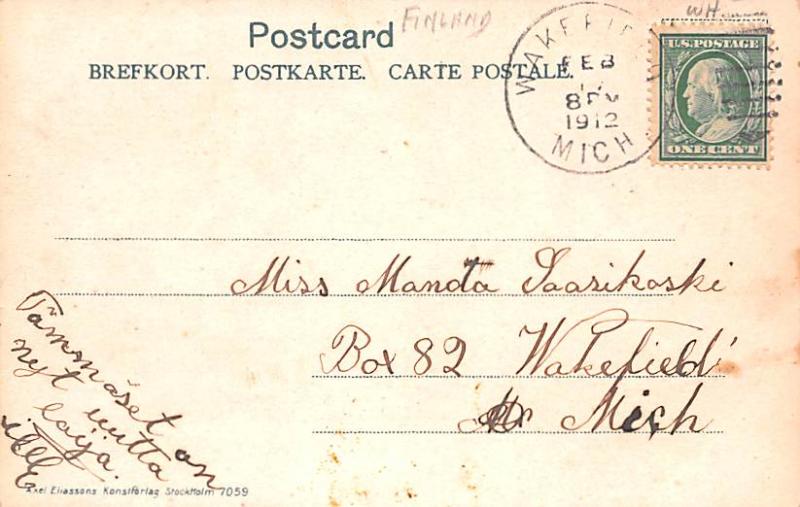 FINLAND
WH.
Postcard
BREFKORT. POSTKARTE. CARTE POSTALE.
WAKEFIEL
FEB
8 PM
1912
MICH.
U.S. POSTAGE
ONE CENT
Miss Manda Saarikoski
Box 82 Wakefield
Mich
Tämmäset on
nyt uutta
laija.
Axel Eliassons Konstförlag Stockholm 7059